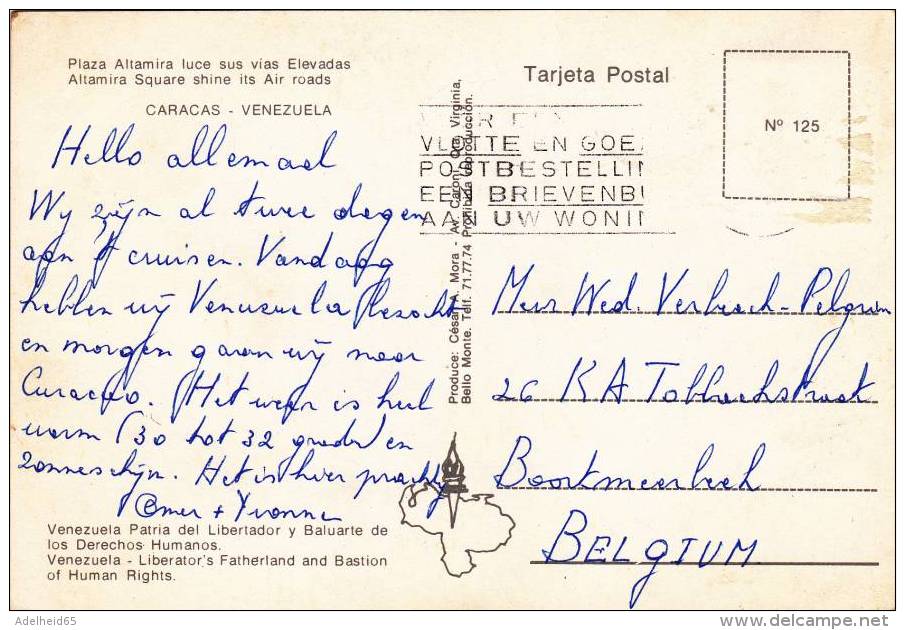 Plaza Altamira luce sus vías Elevadas
Altamira Square shine its Air roads
CARACAS - VENEZUELA
Hello allemaal
Wij zijn al twee dagen
aan 't cruisen. Vandaag
hebben wij Venuzuela bezocht
en morgen gaan wij naar
Curacao. Het weer is heel
warm (30 tot 32 graden) en
zonneschijn. Het is hier prachtig
Omer + Yvonne
Venezuela Patria del Libertador y Baluarte de
los Derechos Humanos.
Venezuela - Liberator's Fatherland and Bastion
of Human Rights.
Produce: César A. Mora - Av. Caroni, Qta. Virginia,
Bello Monte. Telf. 71.77.74 Prohibida reproducción.
Tarjeta Postal
Nº 125
VLOTTE EN GOE
POSTBESTELLIN
EEN BRIEVENBU
AAN UW WONIN
Mevr Wed. Verbeeck-Pelgrim
26 KA Tobbackstraat
Boortmeerbeek
BELGIUM
Adelheid65
delcampe.net